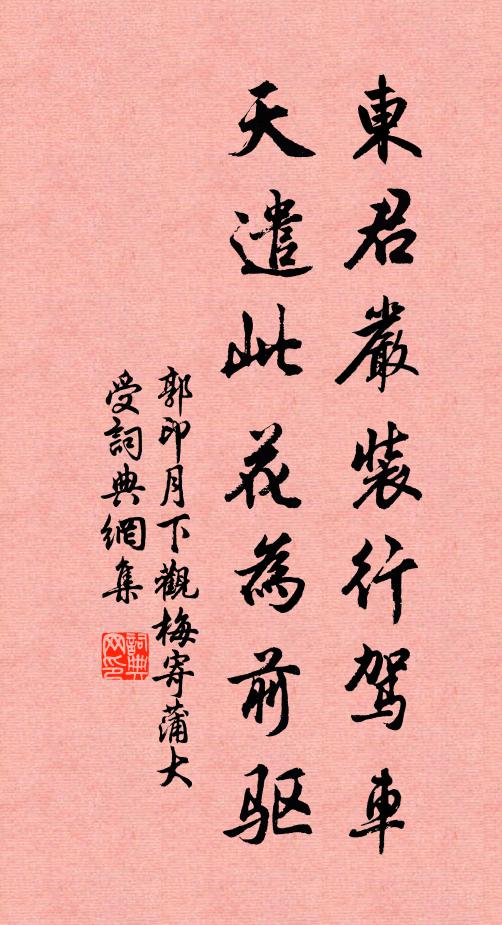 東君嚴裝行駕車
天遣此花為前驱
郭印月下觀梅寄蒲大
受詞典網集
詞典网印